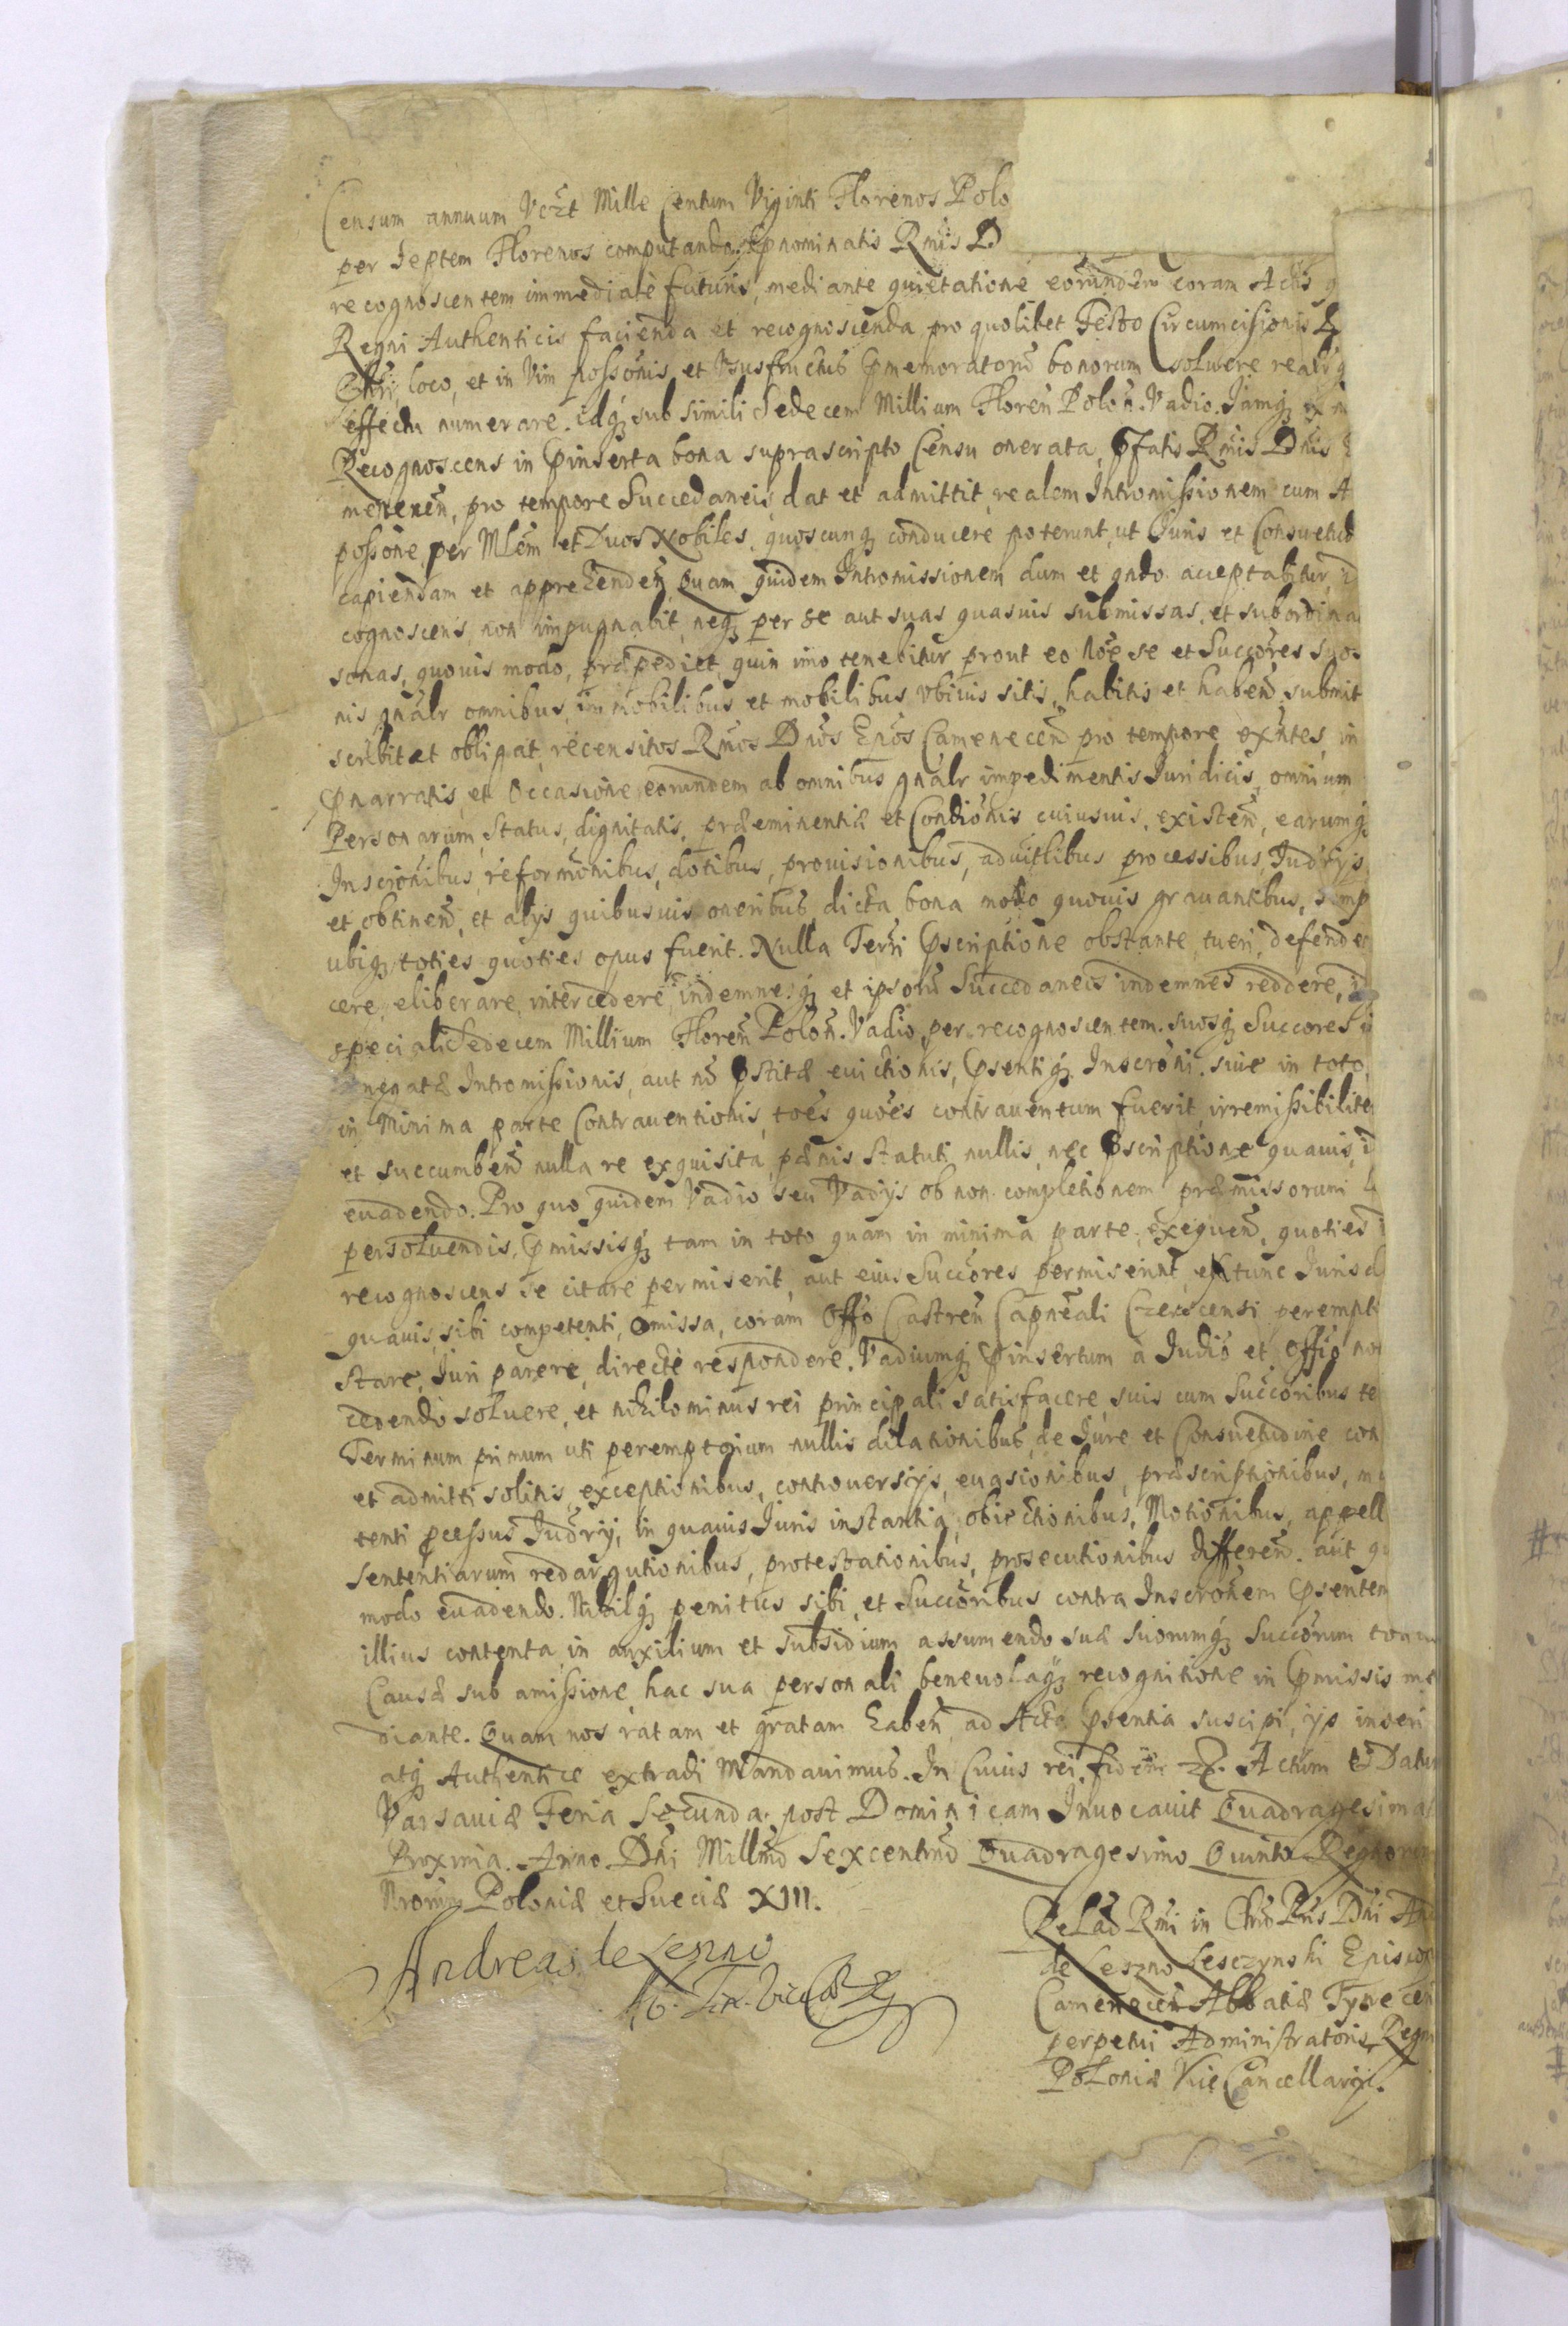 Censum annuum Vczt Mille Centum Viginti Florenos Polo
per Septem Florenos computando, suprnominatis Rmis D
recognoscentem immediatè futuris, mediante quietatione eorundem coram Actis q
Regni Authenticis facienda et recognoscenda pro quolibet Festo Circumcisionis
Chri, loco, et in Vim possonis et Vsusfructus pmemoratorũ bonorum soluere realr q
effectu numerare. idq sub simili Sedecem Millium Floren Polon. Vadio. Jamq ex
Recognoscens in pinserta bona suprascripto Censu onerata, pfatis Rmis Dnis
menecen, pro tempore Succedaneis, dat et admittit, realem Intromissionem cum A
possone, per Mlem et Duos Nobiles, quoscunq conducere poterunt, ut Juris et Consuetud
capiendam et apprehenden. Quam quidem Intromissionem dum et qndo acceptabitur, id
cognoscens, non impugnabit, neq per se aut suas quasuis submissas, et subordina
sonas, quouis modo, præpediet, quin imo tenebitur prout eo noe se et Succores suos
nis gnalr omnibus, immobilibus et mobilibus vbiuis sitis, habitis et haben submit
scribit et obligat, recensitos Rmos Dnos Epos Camenecen pro tempore exntes, in
pnarratis, et Occasione eorundem ab omnibus gnalr impedimentis Juridicis, omnium
Personarum, Status, dignitatis, præeminentiæ et Condionis cuiusuis, existen, earumq
Inscrionibus, reformonibus, dotibus, provisionibus, aduitlibus processibus, Judrijs
et obtinen, et alijs quibusuis oneribus dicta bona modo quouis grauantibus, semp
ubiq, toties quoties opus fuerit. Nulla Terri pscriptione obstante, tueri, defender
cere, eliberare, intercedere, indemnesq et ipsorũ Succedaneos indemnes reddere, id
speciali Sedecem Millium Floren Polon. Vadio, per recognoscentem suosq Succores
negatæ Intromissionis, aut nõ pstitæ euictionis, psentiq Inscroni siue in toto,
in Minima parte Contrauentionis, toes quoes contrauentum fuerit, irremissibilite
et succumben nulla re exquisita, pœnis Statuti nullis, nec pscriptione quauis, id
euadendo. Pro quo quidem Vadio seu Vadijs ob non completionem præmissorum
persoluendis, pmissisq tam in toto quam in minima parte, exequen, quoties
recognoscens se citare permiserit, aut eius Succores permiserint, extunc Jurisd
quauis, sibi competenti, omissa, coram Offo Castren Capneali Czerscensi perempt
stare, Juri parere, directè respondere. Vadiumq pinsertum à Judio et Offio non
cedendo soluere, et nihilominus rei principali satisfacere, suis cum Succoribus te
Terminum primum uti peremptorium nullis dilationibus, de Jure et Consuetudine con
et admitti solitis, exceptionibus, controuersijs, euasionibus, præscriptionibus, m
tenti pcessus Judrij, in quauis Juris instantia, obiectionibus, Motionibus, appell
sententiarum redargutionibus, protestationibus, prosecutionibus differen. aut qu
modo euadendo. Nihilq penitus sibi, et Succoribus contra Inscronem psentem
illius contenta, in auxilium et subsidium assumendo suæ suorumq Succorum
Causæ sub amissione, hac sua personali beneuolaq recognitione in pmissis me
diante. Quam nos ratam et gratam haben ad Acta psentia suscipi, ijs inseri
atq Authentice extradi Mandauimus. In Cuius rei fidem &. Actum et Datum
Varsauiæ Feria Secunda post Dominicam Inuocauit Quadragesimal
Proxima. Anno Dni Millmo Sexcentmo Quadragesimo Quinto. Regnorum
Nrorum Poloniæ et Sueciæ XIII.
Andreas de Leszno
Relao Rmi in Chro Pris Dni And
de Leszno Lesczynski Episcop
Camenecen Abbatiæ Tynecen
perpetui Administratoris, Regni
Poloniæ ViceCancellarij.